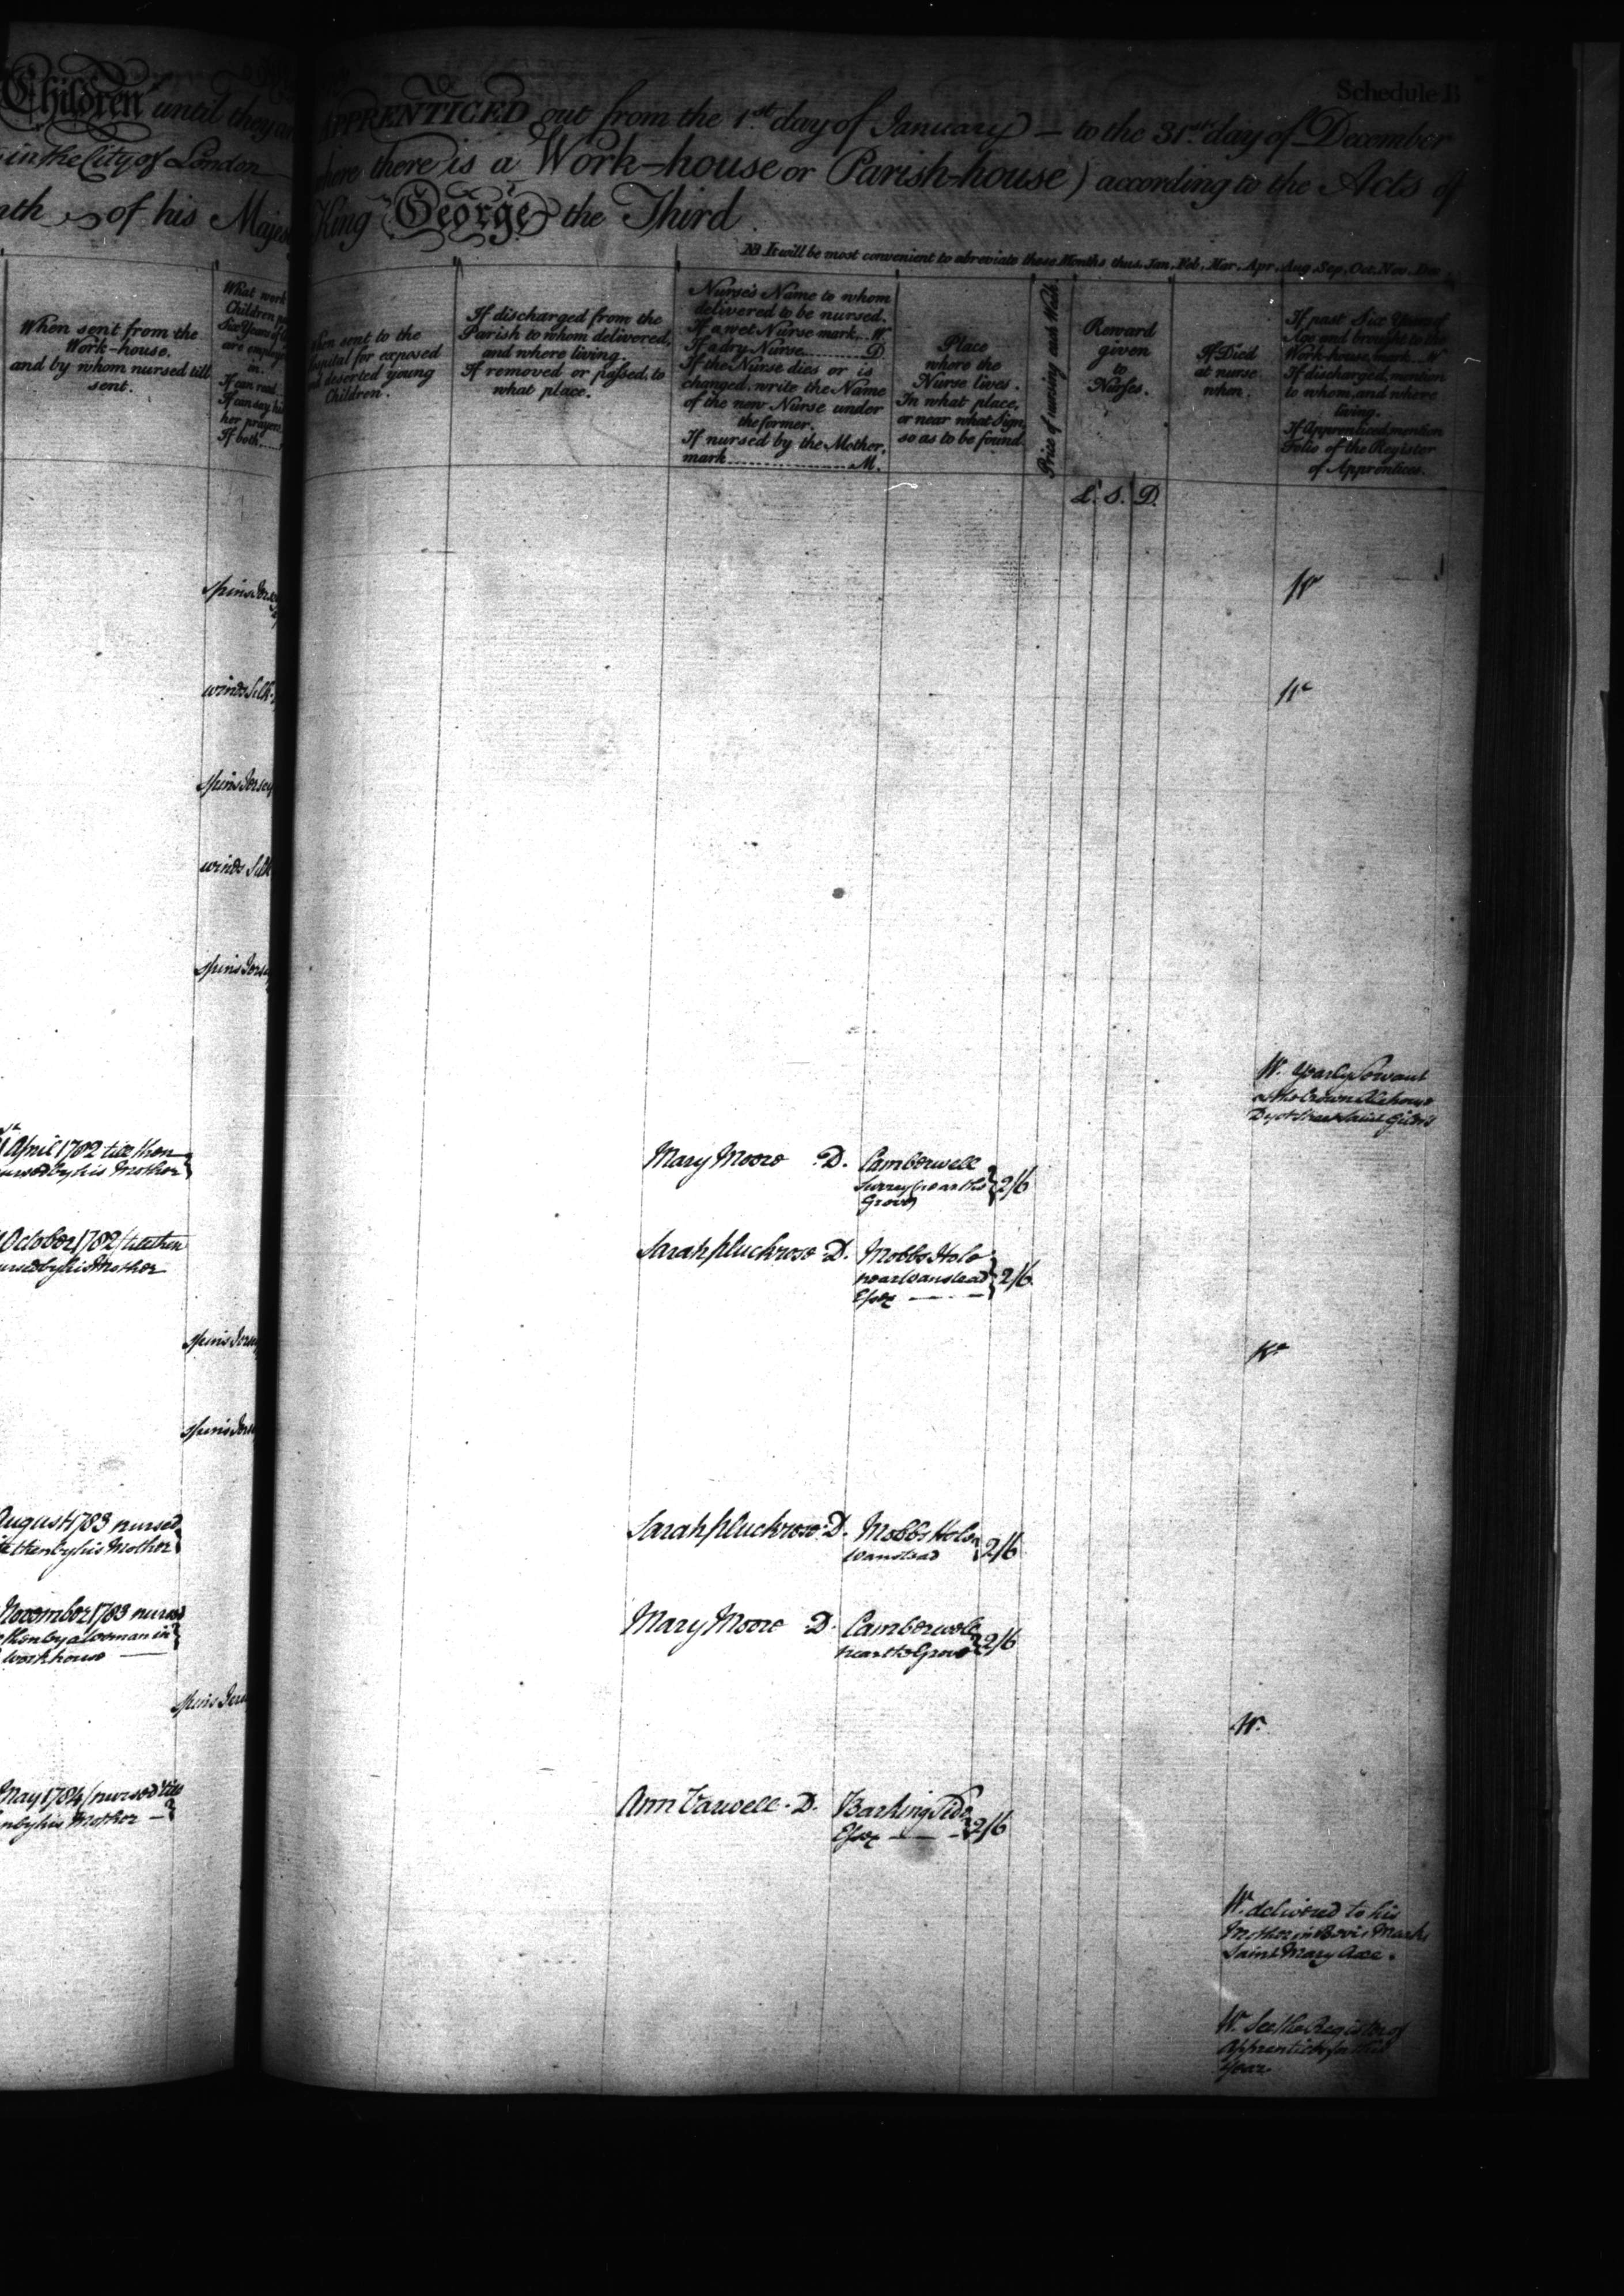 Schedule B
Children until they are
in the City of London
of his Majes
APPRENTICED out from the 1st day of January — to the 31st day of December
where there is a Work-house or Parish-house) according to the Acts of
King George the Third
NB It will be most convenient to abreviate these Months thus. Jan. Feb. Mar. Apr. Aug. Sep. Oct. Nov. Dec
When sent from the
Work-house.
and by whom nursed till
sent.
What work
Children
Six Years of
are employ
in.
If can read
If can say his
her prayers
If both
sent to the
Hospital for exposed
and deserted young
Children.
If discharged from the
Parish to whom delivered,
and where living.
If removed or passed, to
what place.
Nurse's Name to whom
delivered to be nursed.
If a wet Nurse mark... W
If a dry Nurse............ D
If the Nurse dies or is
changed, write the Name
of the new Nurse under
the former.
If nursed by the Mother,
mark.................. M.
Place
where the
Nurse lives.
In what place,
or near what Sign,
so as to be found.
Price of nursing each Week
Reward
given
to
Nurses.
If Died
at nurse
when.
If past Six Years of
Age and brought to the
Work-house, mark... W
If discharged, mention
to whom, and where
living.
If Apprenticed, mention
Folio of the Register
of Apprentices.
L. S. D.
spins Jersey
W
winds Silk
W
spins Jersey
winds Silk
spins Jersey
W. Yearly Servant
at the Crown Alehouse
Dyot Street Saint Giles's
April 1782 till then
nursed by his Mother
Mary Moore D. Camberwell
Surrey (near the 2/6
Grove)
October 1782 / till then
nursed by his Mother
Sarah Pluckrose D. Mobbs Hole
near Wanstead 2/6
Essex
spins Jersey
W
spins Jersey
August 1783 nursed
till then by his Mother
Sarah Pluckrose D. Mobbs Hole
Wanstead 2/6
November 1783 nursed
then by a Woman in
Workhouse
Mary Moore D. Camberwell
near the Grove 2/6
spins Jersey
W.
May 1784 / nursed till
then by his Mother
Ann D. Barking Side
Essex 2/6
W. delivered to his
Mother in Bevis Marks
Saint Mary Axe.
W. See the Register of
Apprentices for this
Year